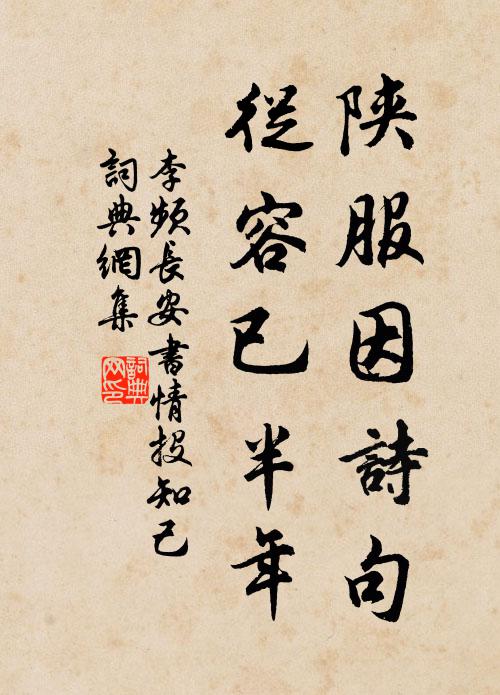 陝服因詩句
從容已半年
李頻長安書情投知己
詞典網集
詞典
网印